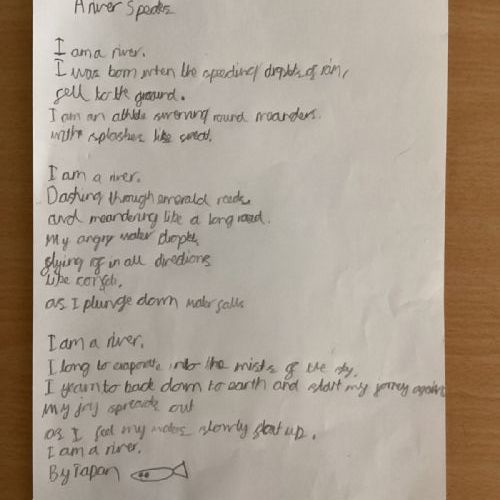 A river Speaks
I am a river.
I was born when the speeding droplets of rain,
fell to the ground.
I am an athlete swerving round meanders.
with splashes like sweat.
I am a river.
Dashing through emerald reeds
and meandering like a long road.
My angry water droplets
flying off in all directions
like confeti.
as I plunge down waterfalls
I am a river.
I long to evaporate into the mists of the sky.
I yearn to back down to earth and start my jorney again
My joy spreads out
as I feel my waters slowly start up.
I am a river.
By Tapan